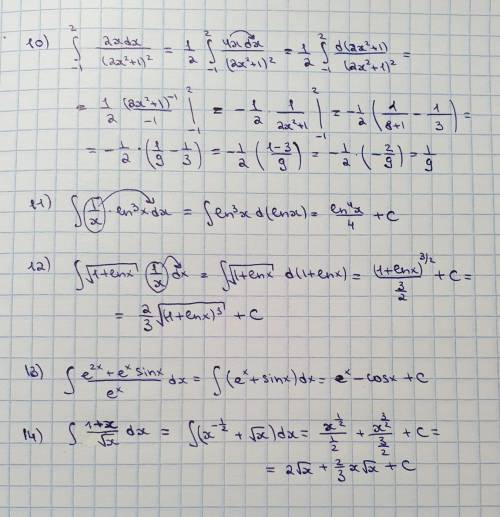 10) ∫₋₁² 2xdx/(2x²+1)² = 1/2 ∫₋₁² 4xdx/(2x²+1)² = 1/2 ∫₋₁² d(2x²+1)/(2x²+1)² =
= 1/2 (2x²+1)⁻¹/-1 |₋₁² = -1/2 · 1/(2x²+1) |₋₁² = -1/2 (1/(8+1) - 1/3) =
= -1/2 · (1/9 - 1/3) = -1/2 ((1-3)/9) = -1/2 · (-2/9) = 1/9
11) ∫ 1/x · ln³x dx = ∫ ln³x d(lnx) = ln⁴x/4 + C
12) ∫ √(1+lnx) (1/x) dx = ∫ √(1+lnx) d(1+lnx) = (1+lnx)^(3/2)/(3/2) + C =
= 2/3 √((1+lnx)³) + C
13) ∫ (e²ˣ + eˣ sinx)/eˣ dx = ∫ (eˣ + sinx) dx = eˣ - cosx + C
14) ∫ (1+x)/√x dx = ∫ (x^(-1/2) + √x) dx = x^(1/2)/(1/2) + x^(3/2)/(3/2) + C =
= 2√x + 2/3 x√x + C